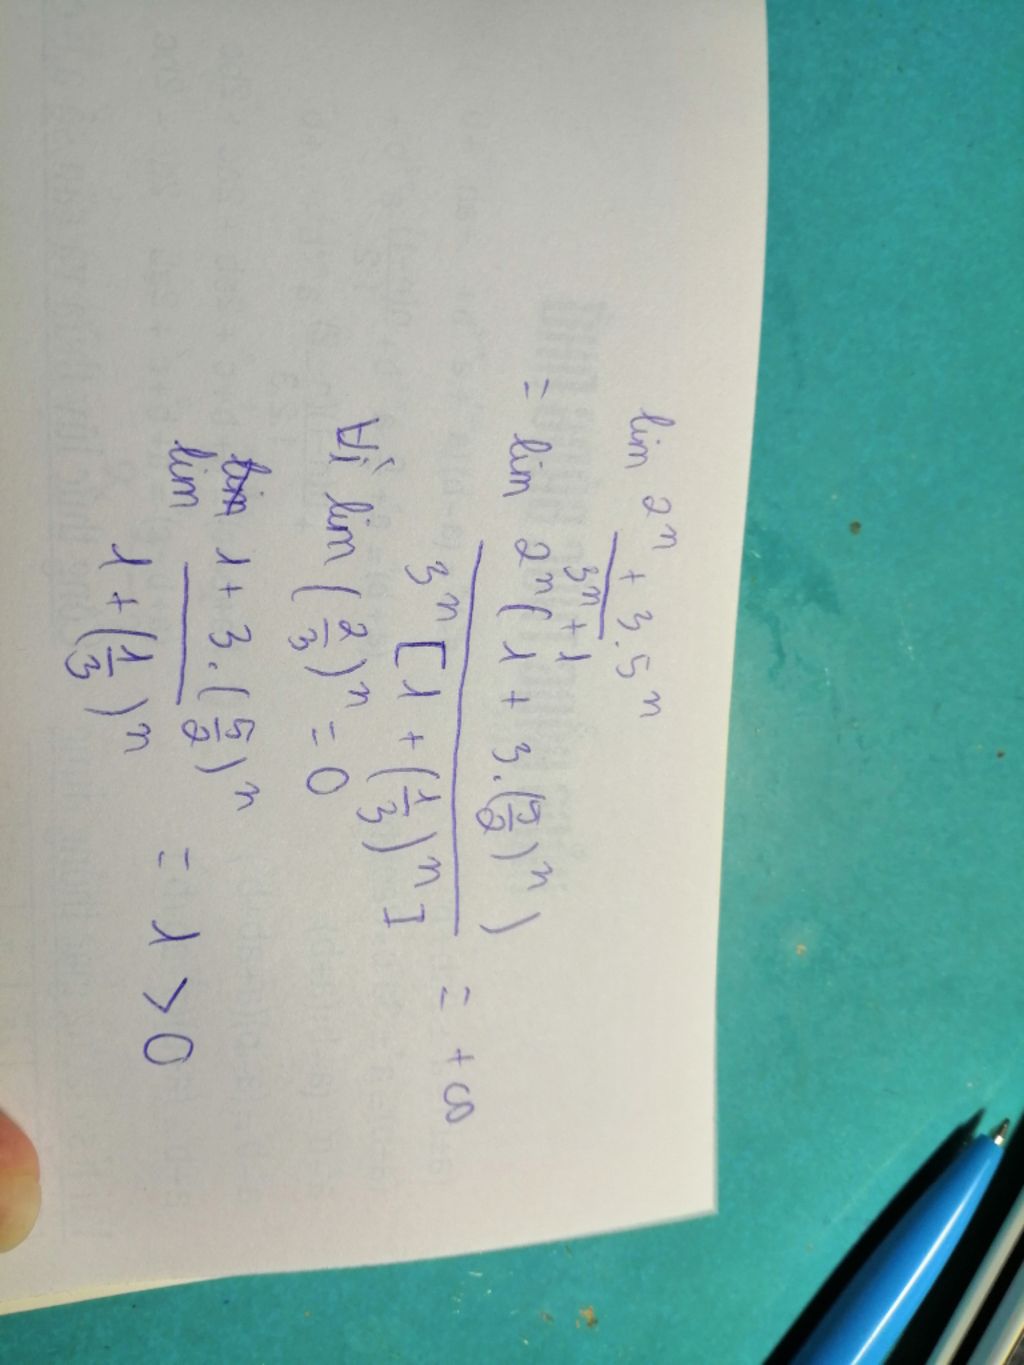 lim 2ⁿ + 3.5ⁿ
3ⁿ + 1
= lim 2ⁿ(1 + 3.(5/2)ⁿ) = +∞
3ⁿ[1 + (1/3)ⁿ]
Vì lim (2/3)ⁿ = 0
lim 1 + 3.(5/2)ⁿ
lim = 1 > 0
1 + (1/3)ⁿ